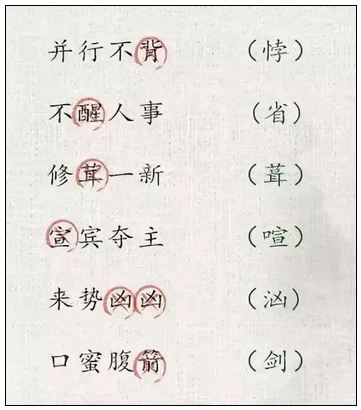 并行不背 （悖）
不醒人事 （省）
修茸一新 （葺）
宣宾夺主 （喧）
来势凶凶 （汹）
口蜜腹箭 （剑）